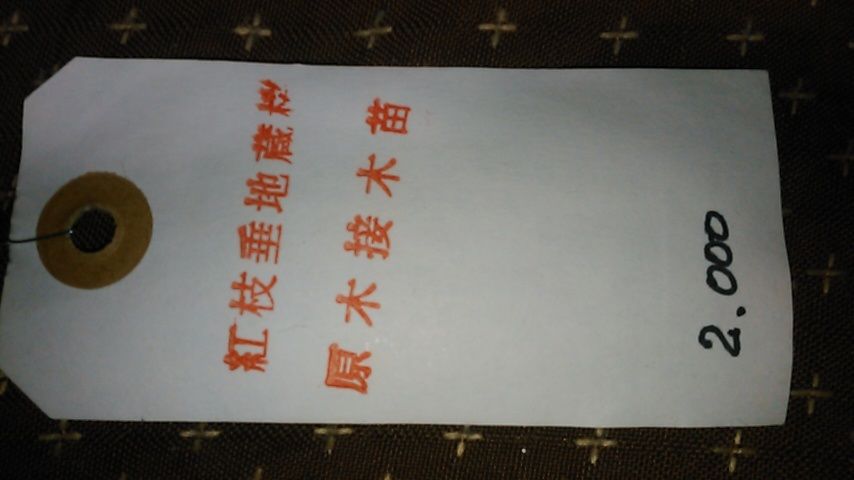 紅枝垂地蔵桜
原木接木苗
2.000